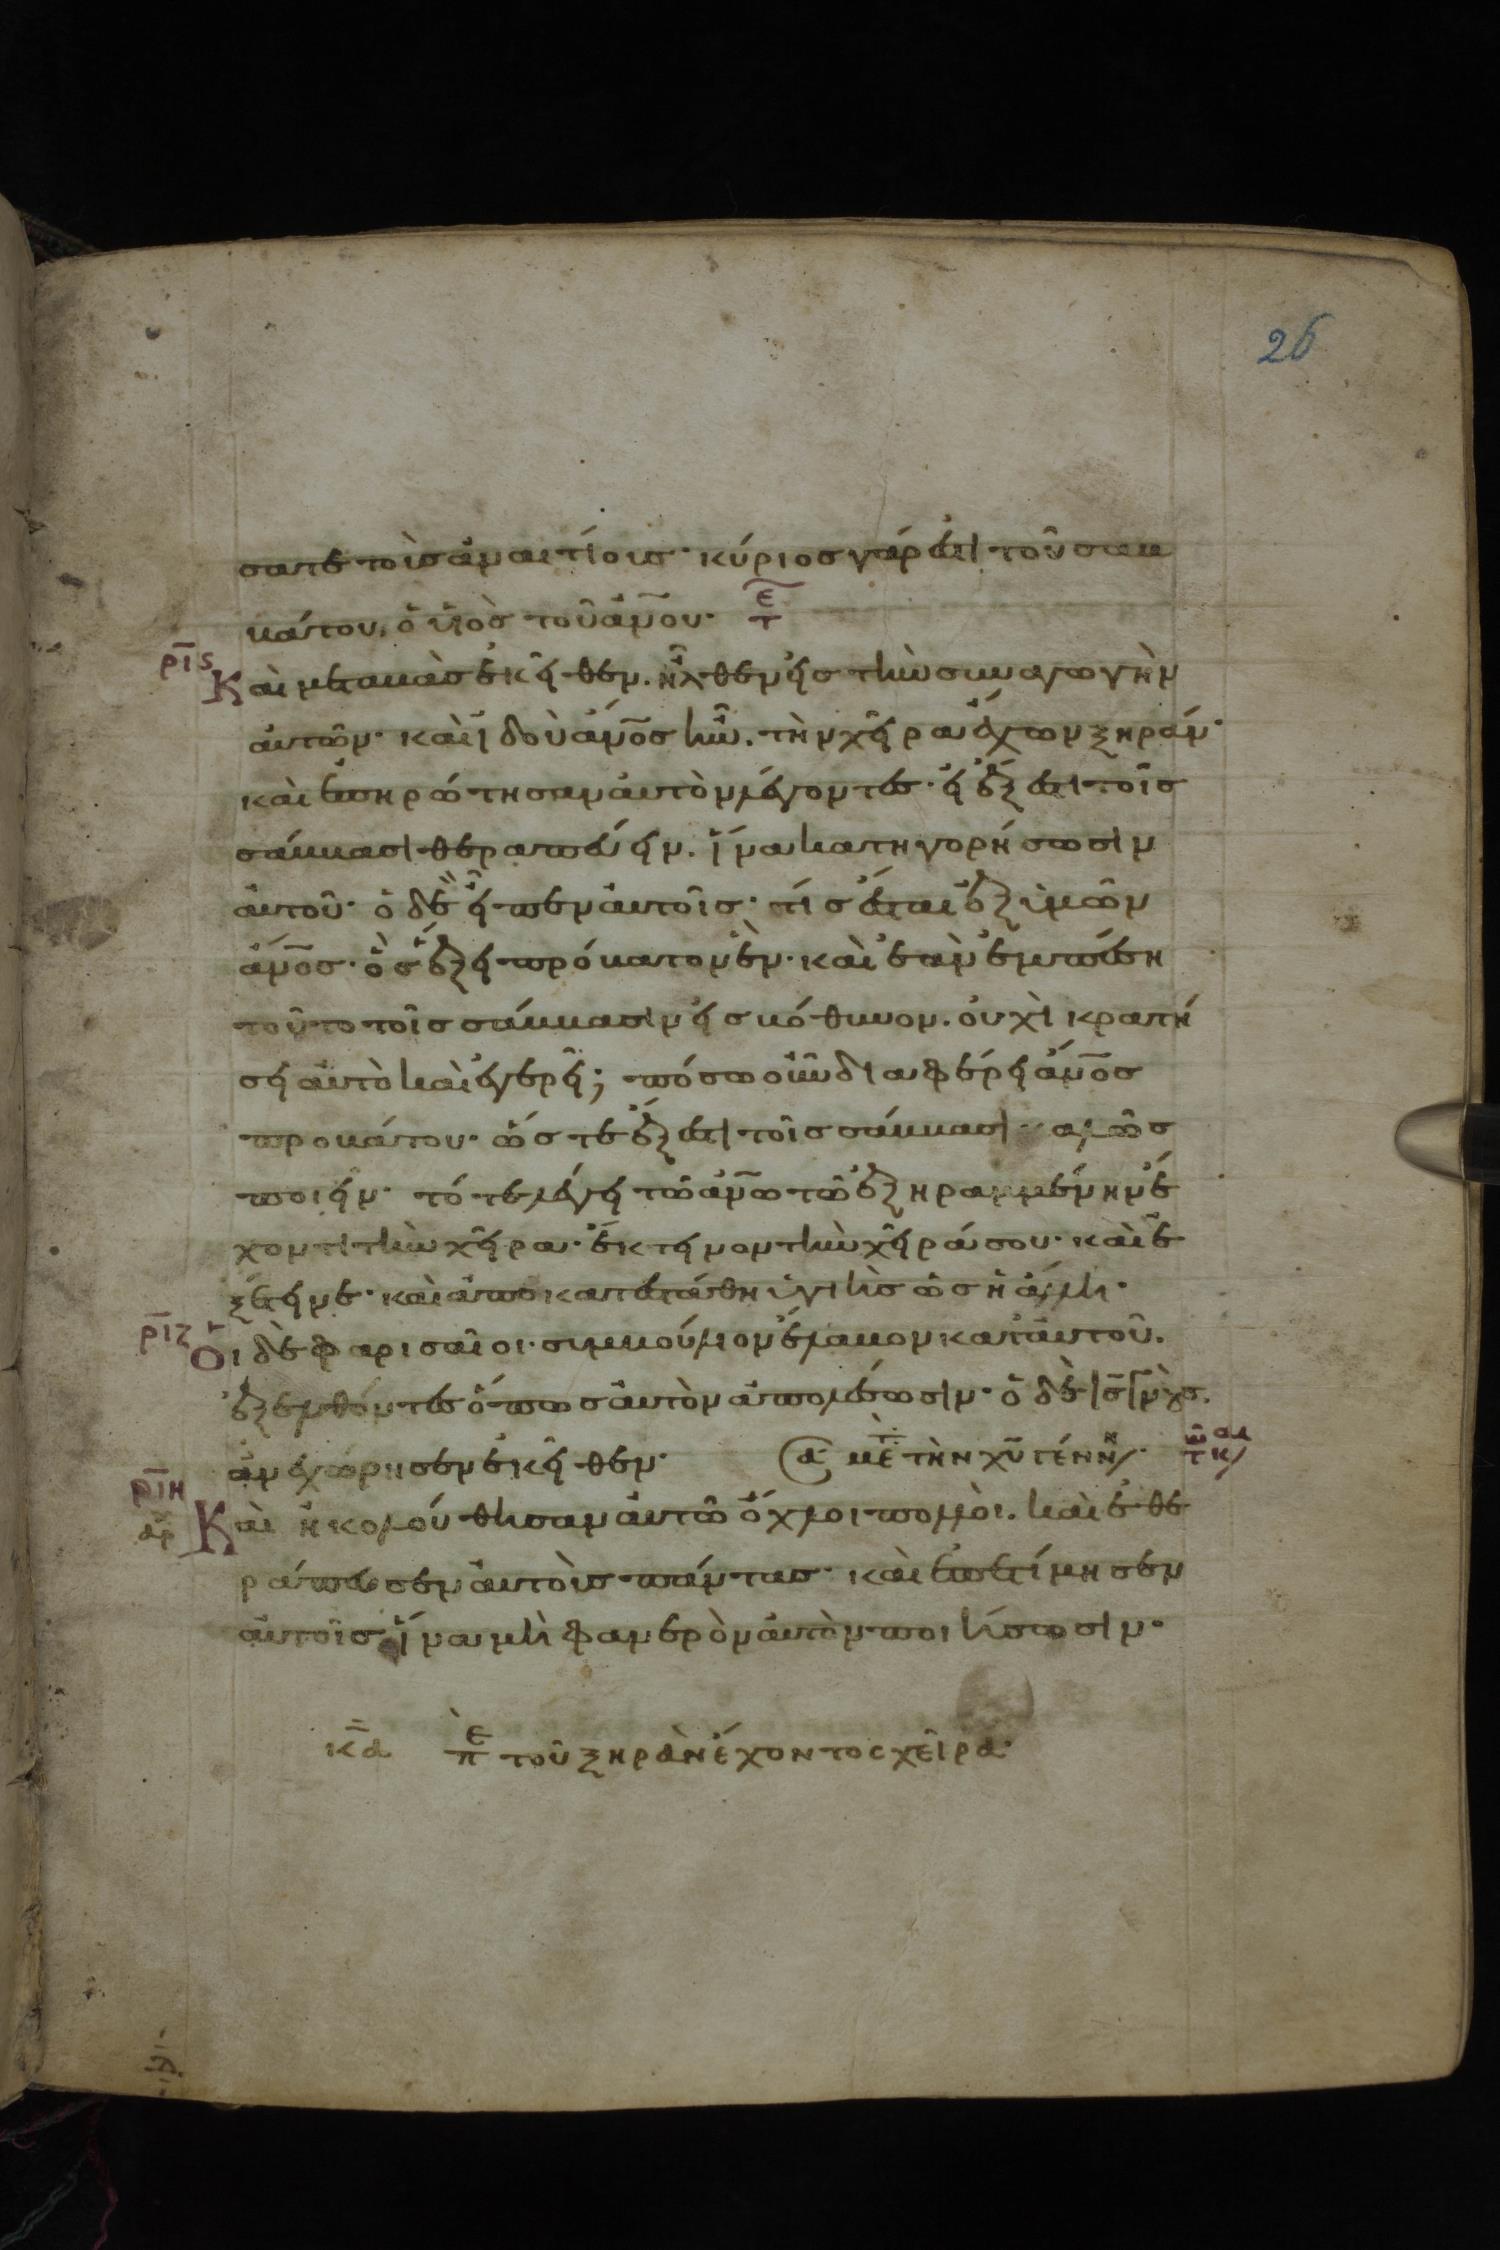 26
σατε τοὺς ἀναιτίους· κύριος γάρ ἐστι τοῦ σαβ
βάτου, ὁ υἱὸς τοῦ ἀν̅ου· τε̅
ρι̅ς Καὶ μεταβὰς ἐκεῖθεν. ἦλθεν εἰς τὴν συναγωγὴν
αὐτῶν· καὶ ἰδοὺ ἄν̅ος ἦν. τὴν χεῖρα ἔχων ξηράν·
καὶ ἐπηρώτησαν αὐτὸν λέγοντες· εἰ ἔξεστι τοῖς
σάββασι θεραπεύειν. ἵνα κατηγορήσωσιν
αὐτοῦ· ὁ δὲ εἶπεν αὐτοῖς· τίς ἔσται ἐξ ὑμῶν
ἄν̅ος· ὃς ἕξει πρόβατον ἓν· καὶ ἐὰν ἐμπέση
τοῦτο τοῖς σάββασιν εἰς βόθυνον. οὐχὶ κρατή
σει αὐτὸ καὶ ἐγερεῖ; πόσω οὖν διαφέρει ἄν̅ος
προβάτου· ὥστε ἔξεστι τοῖς σάββασι καλῶς
ποιεῖν· τότε λέγει τῶ ἀν̅ω τῶ ἐξηραμμένην ἔ
χοντι τὴν χεῖρα· ἔκτεινον τὴν χεῖρά σου· καὶ ἐ
ξέτεινε· καὶ ἀποκατεστάθη ὑγιὴς ὡς ἡ ἄλλη·
ρι̅ζ Οἱ δὲ φαρισαῖοι· συμβούλιον ἔλαβον κατ αὐτοῦ.
ἐξελθόντες ὅπως αὐτὸν ἀπολέσωσιν· ὁ δὲ ι̅ς γνοὺς.
ἀνεχώρησεν ἐκεῖθεν·
ρι̅η Καὶ ἠκολούθησαν αὐτῶ ὄχλοι πολλοί. καὶ ἐθε
ράπευσεν αὐτοὺς πάντας· καὶ ἐπετίμησεν
αὐτοῖς ἵνα μὴ φανερὸν αὐτὸν ποιήσωσιν·
κ̅α πε τοῦ ξηρὰν ἔχοντος χεῖρα·